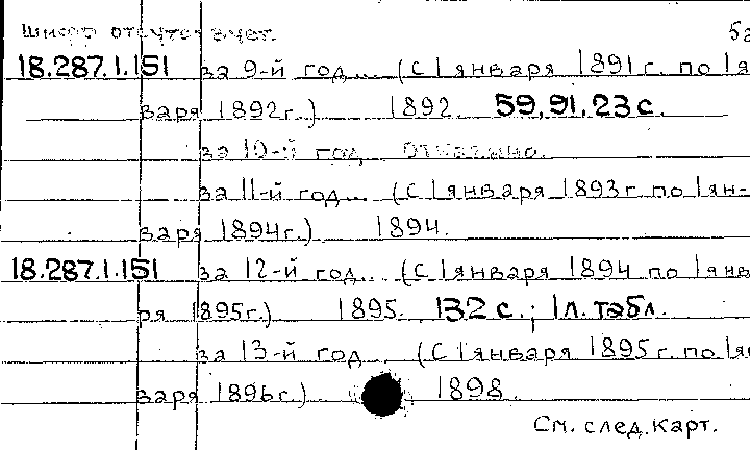 Шифр отсутствует.
18.287.1.151 за 9-й год... (с 1 января 1891 г. по 1 ян-
варя 1892г.) 1892. 59,91,23 с.
за 10-й год
за 11-й год... (с 1 января 1893 г по 1 ян-
варя 1894г.) 1894.
18.287.1.151 за 12-й год... (с 1 января 1894 по 1 янв
ря 1895г.) 1895. 132 с.; 1 л. табл.
за 13-й год... (с 1 января 1895 г. по 1 ян
варя 1896г.) 1898
См. след. карт.